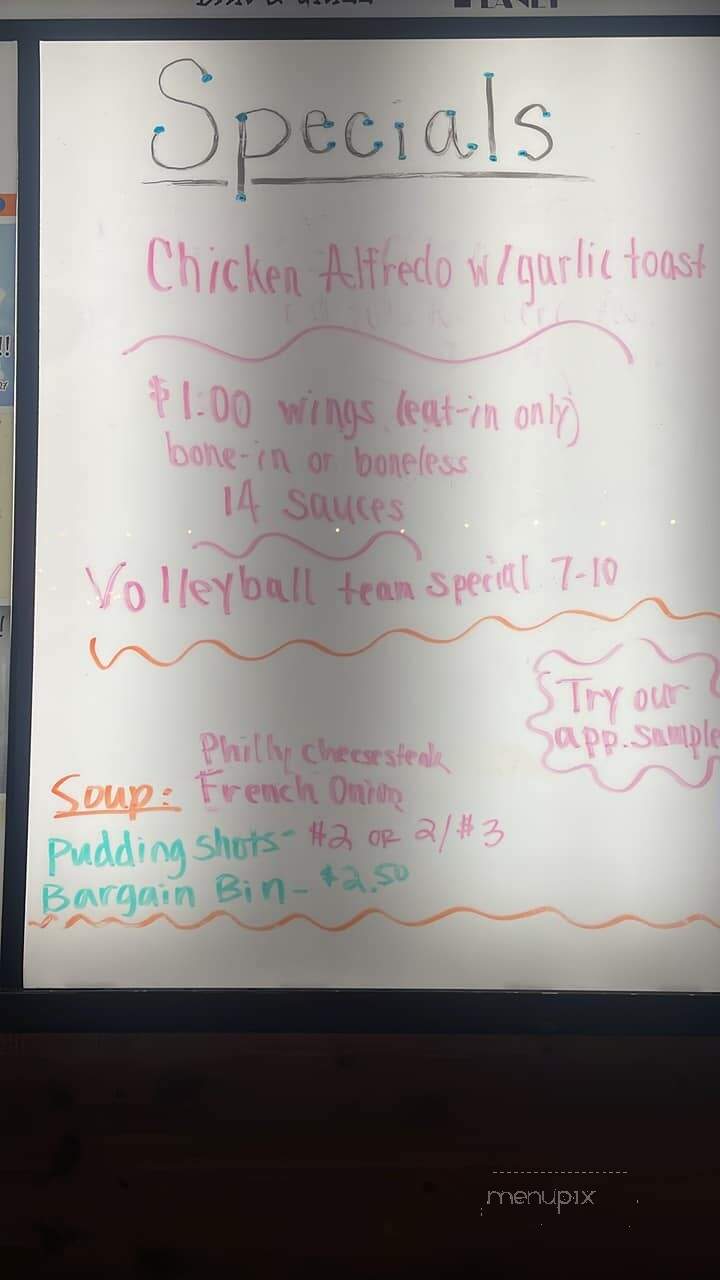 Specials
Chicken Alfredo w/garlic toast
$1.00 wings (eat-in only)
bone-in or boneless
14 sauces
Volleyball team special 7-10
Try our
app. sample
Philly cheesesteak
Soup: French Onion
Pudding shots- $2 OR 2/$3
Bargain Bin- $2.50
menupix